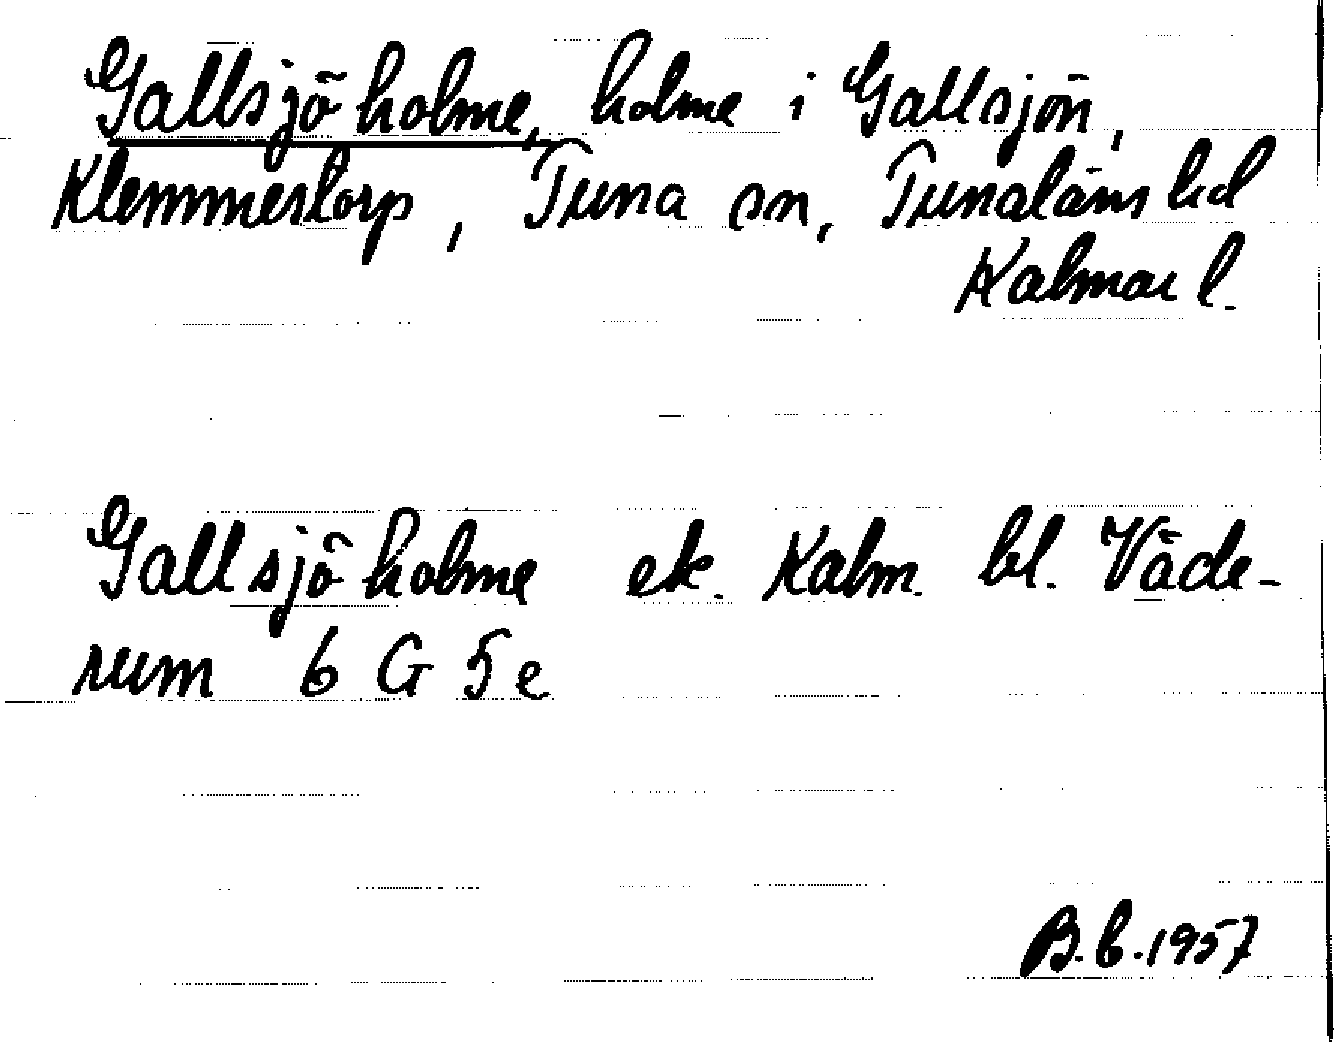 Gallsjö holme, holme i Gallsjön,
Klemmestorp, Tuna sn, Tunaläns hd
Kalmar l.
Gallsjö holme ek. Kalm. bl. Väde-
rum 6 G 5 e
B.b.1957